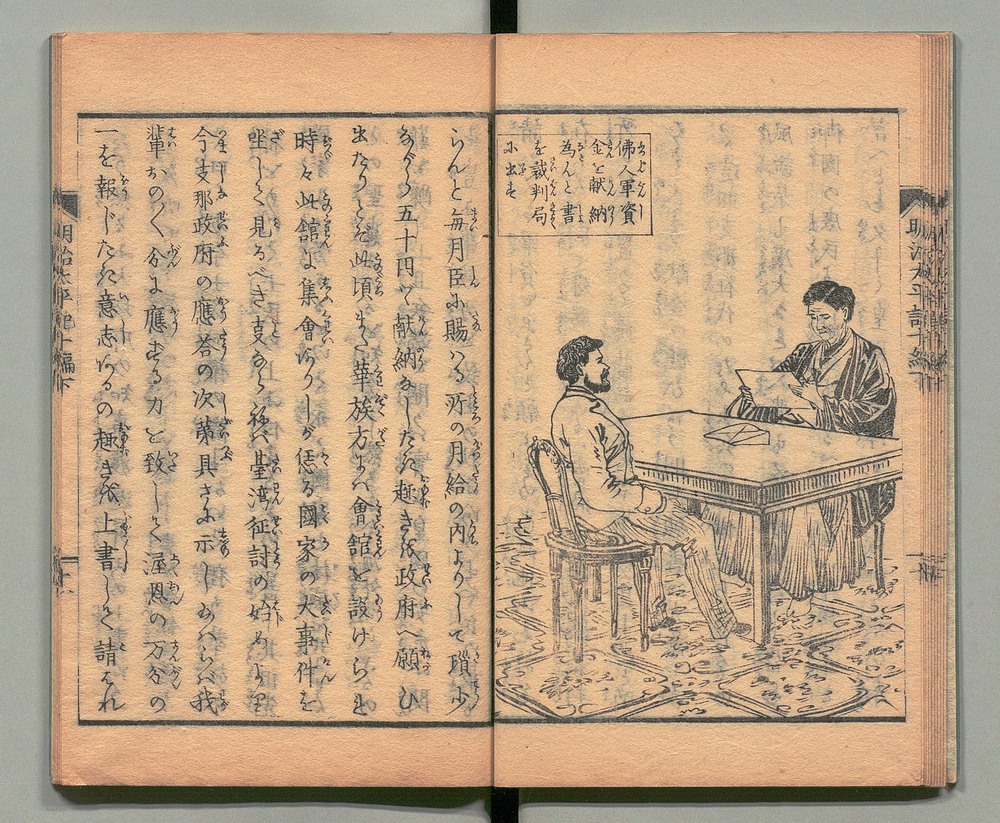 佛人軍資
金を献納
為んと書
を裁判局
に出す
らんと毎月臣に賜はる所の月給の内よりして瑣少
ながら五十円づゝ献納なしたき趣きを政府へ願ひ
出たりとぞ此頃また華族方には會館を設けられ
時々此館に集會ありしが恁る國家の大事件を
坐して見るべき支なら極べ臺湾征討の始めより
今支那政府の應答の次第具さに示しあはらば我
輩おの〱分に應ずる力を致して渥恩の万分の
一を報じたき意志あるの趣きを上書して請はれ
明治太平記十編下